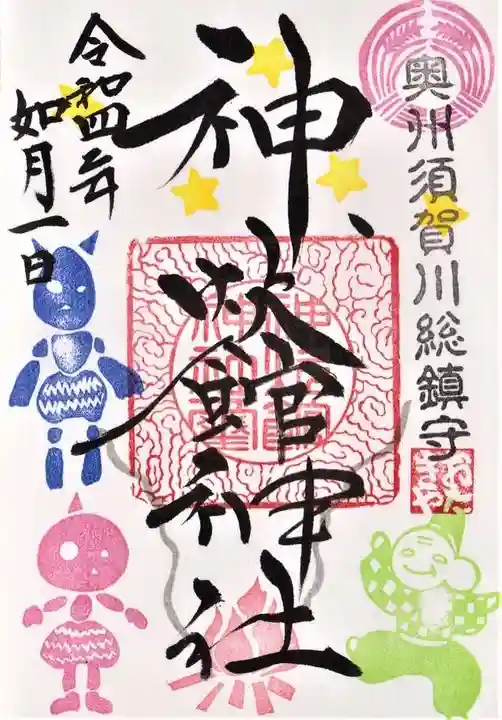 奥州須賀川総鎮守
神炊館神社
令和四年
如月一日